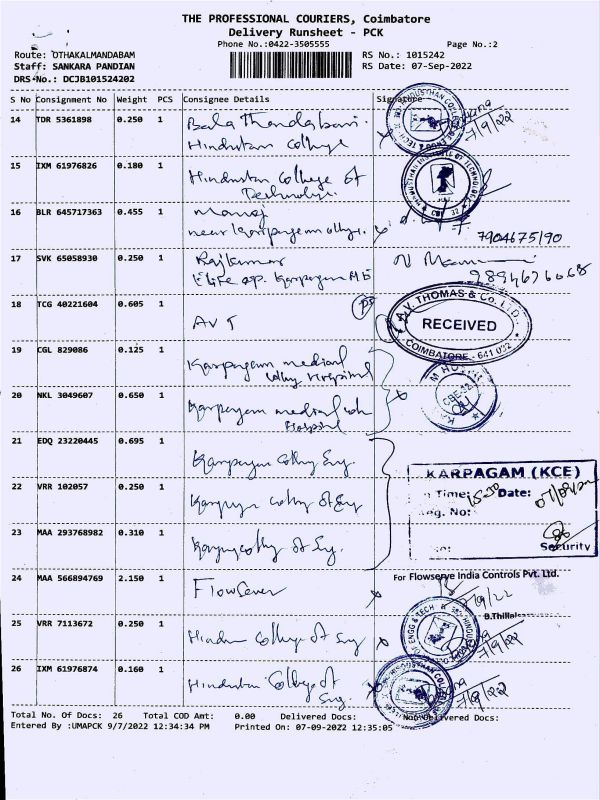 THE PROFESSIONAL COURIERS, Coimbatore
Delivery Runsheet - PCK
Phone No.:0422-3505555
Page No.:2
Route: OTHAKALMANDABAM
RS No.: 1015242
Staff: SANKARA PANDIAN
RS Date: 07-Sep-2022
DRS-No.: DCJB101524202
S No Consignment No Weight PCS Consignee Details Signature
14 TDR 5361898 0.250 1 Bala Thandabani
Hindustan College
7/9/22
15 IXM 61976826 0.180 1 Hindustan College of
Technology.
HINDUSTHAN INSTITUTE OF TECHNOLOGY
16 BLR 645717363 0.455 1 Manoj
near Karpagam
7904675190
17 SVK 65058930 0.250 1 Rajkumar
Elite op. Karpagam
18 TCG 40221604 0.605 1 AVT
A.V. THOMAS & Co. LTD.
RECEIVED
COIMBATORE - 641 032
19 CGL 829086 0.125 1 Karpagam medical
Hospital
20 NKL 3049607 0.650 1 Karpagam medical
Hospital
21 EDQ 23220445 0.695 1 Karpagam College Eng.
22 VRR 102057 0.250 1 of Eng
KARPAGAM (KCE)
Time: 15.30 Date:
Reg. No:
23 MAA 293768982 0.310 1 of Eng.
Security
24 MAA 566894769 2.150 1 Flowserve
For Flowserve India Controls Pvt. Ltd.
7/9/22
25 VRR 7113672 0.250 1 College of Eng
7/9/22
26 IXM 61976874 0.160 1 Hindustan College of
Eng.
7/9/22
Total No. Of Docs: 26 Total COD Amt: 0.00 Delivered Docs: Non Delivered Docs:
Entered By :UMAPCK 9/7/2022 12:34:34 PM Printed On: 07-09-2022 12:35:05